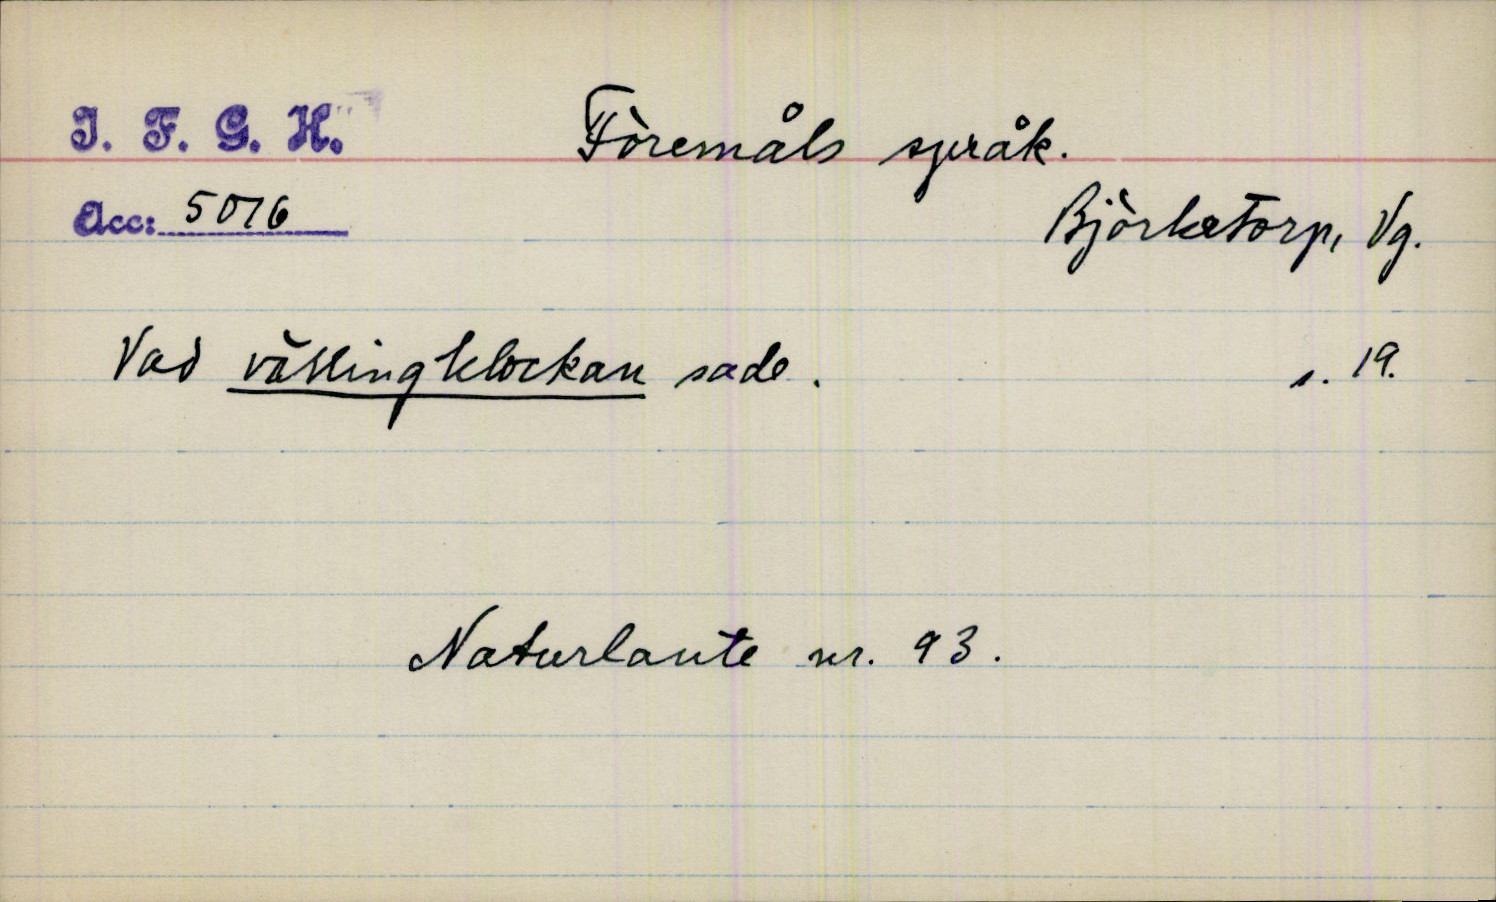 I. F. G. H. Föremåls språk.
Acc: 5076 Björketorp, Vg.
Vad vällingklockan sade. s. 19.
Naturlaute nr. 93.